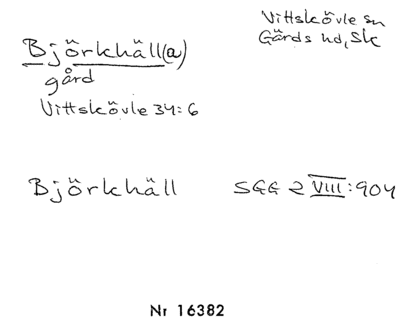 Vittskövle sn
Gärds hd, Sk
Björkhäll(a)
gård
Vittskövle 34:6
Björkhäll SGG 2 VIII:904
Nr 16382